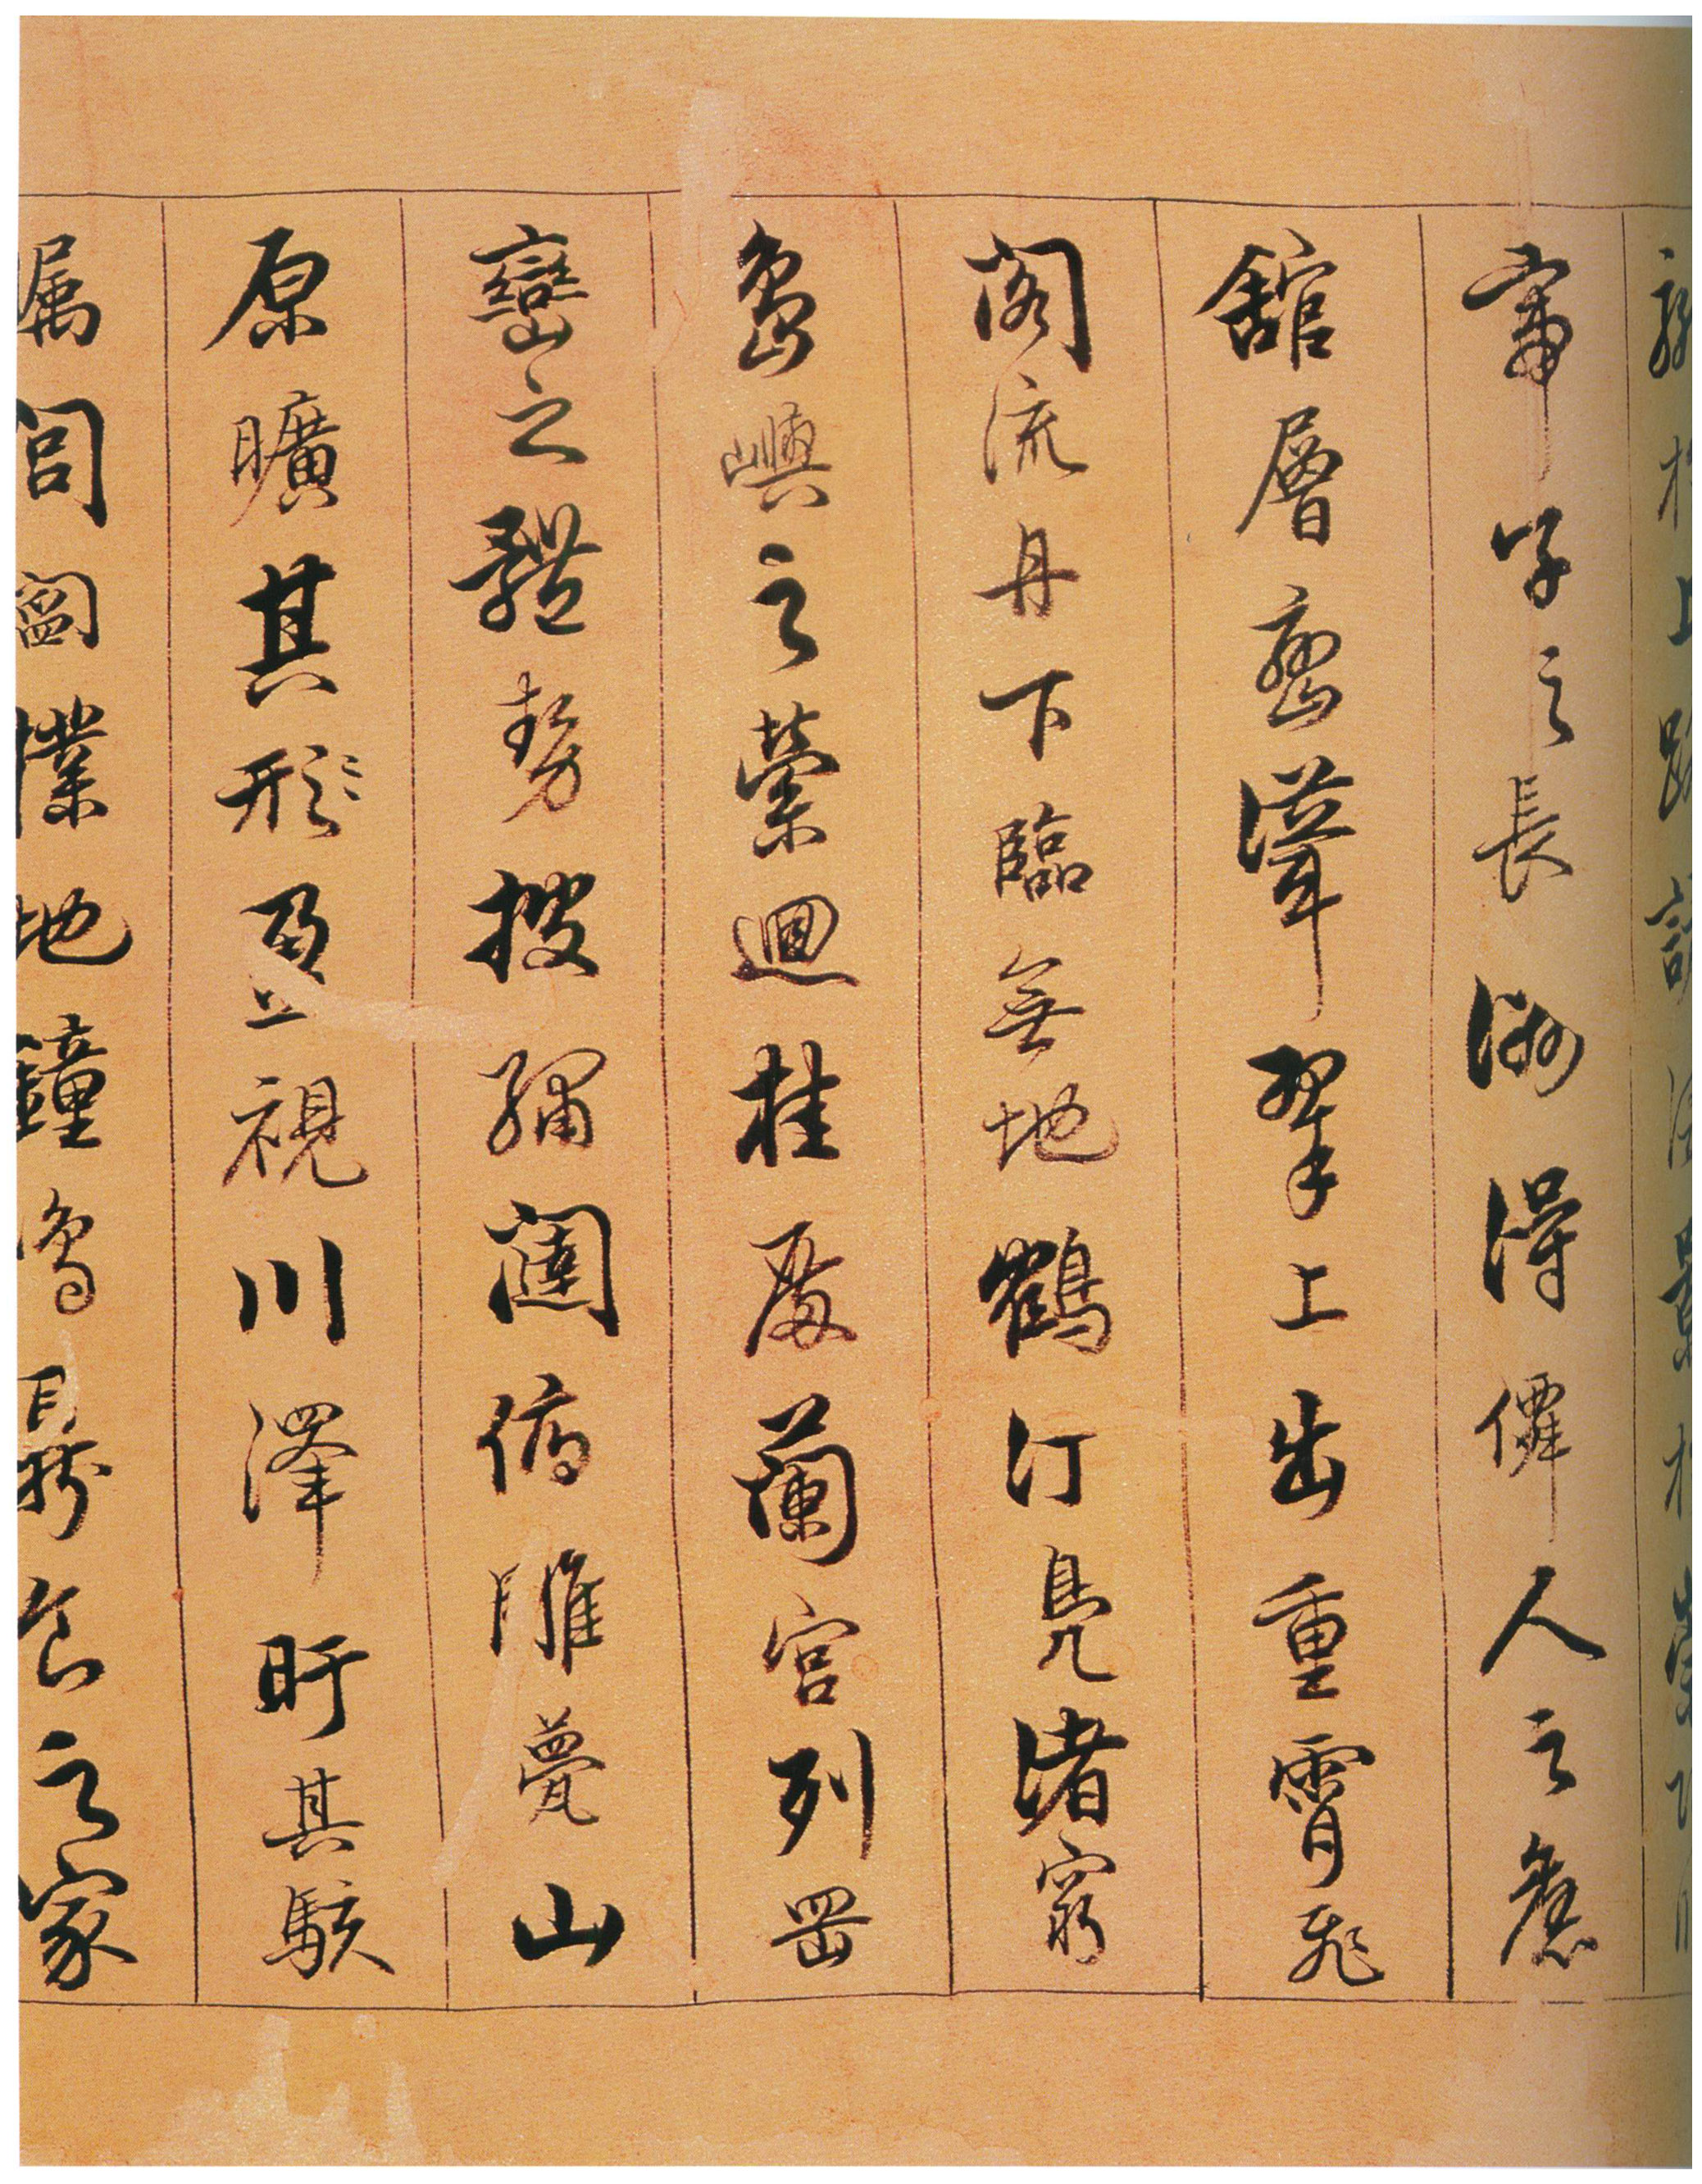 於上路訪風景於崇阿臨
帝子之長洲得僊人之舊
舘層巒聳翠上出重霄飛
閣流丹下臨無地鶴汀鳧渚窮
島嶼之縈迴桂殿蘭宮列岡
巒之體勢披繡闥俯雕甍山
原曠其形盈視川澤盱其駭
矚閭閻撲地鐘鳴鼎食之家